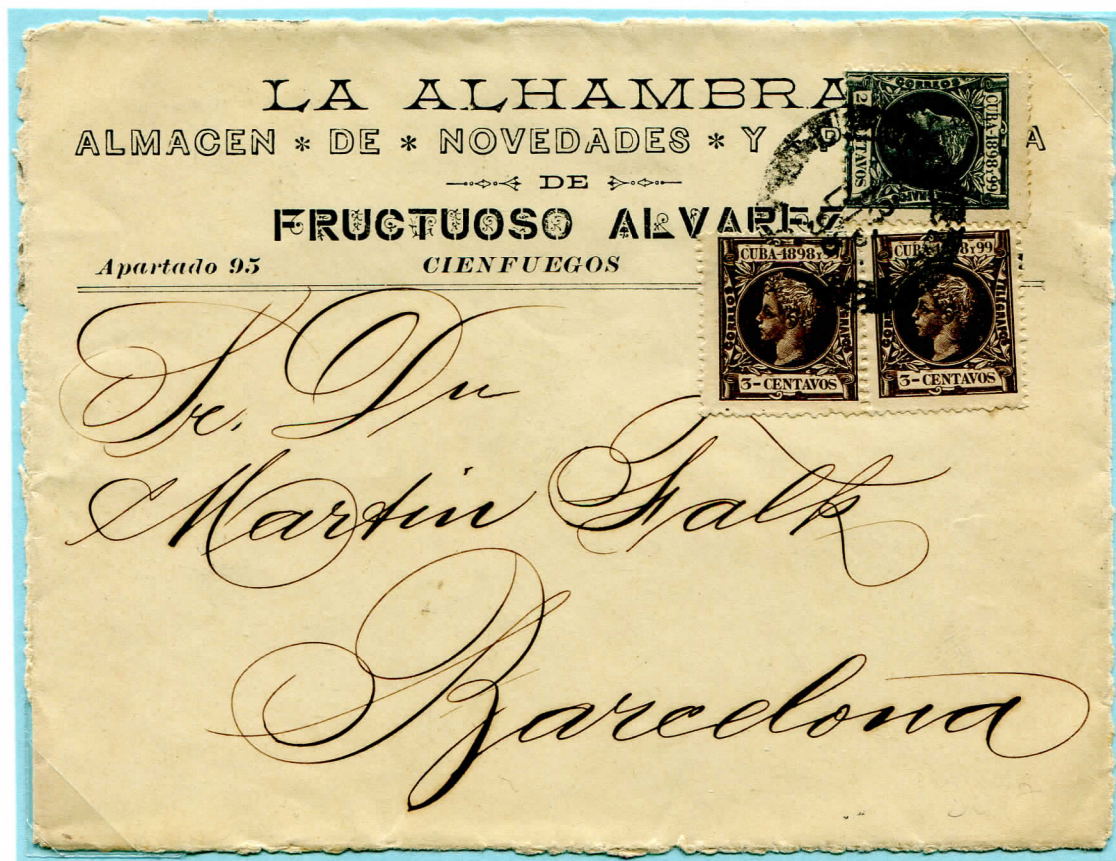 LA ALHAMBRA
ALMACEN * DE * NOVEDADES * Y *
DE
FRUCTUOSO ALVAREZ
Apartado 95 CIENFUEGOS
CORREOS
CUBA-1898 Y 99
CENTAVOS
CUBA-1898 Y 99
CORREOS
3-CENTAVOS
CUBA-1898 Y 99
CORREOS
TELEGRAFOS
3-CENTAVOS
Sr. Dn
Martin Falk
Barcelona